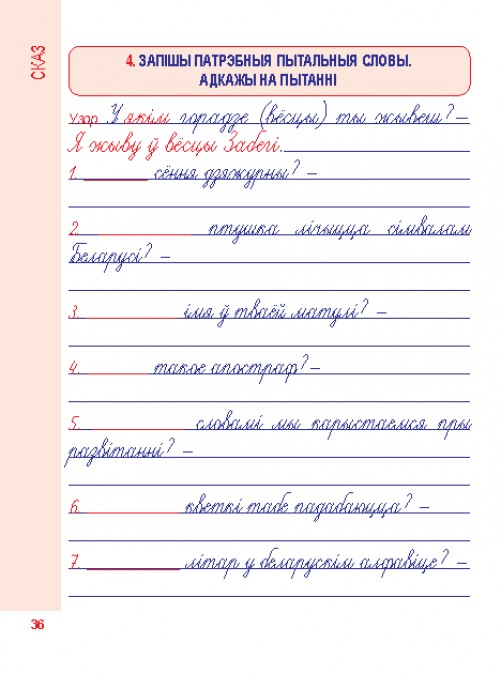 СКАЗ
4. ЗАПІШЫ ПАТРЭБНЫЯ ПЫТАЛЬНЫЯ СЛОВЫ.
АДКАЖЫ НА ПЫТАННІ
Узор У якім горадзе (вёсцы) ты жывеш? –
Я жыву ў вёсцы Забегі.
1. ________ сёння дзяжурны? –
2. ________ птушка лічыцца сімвалам
Беларусі? –
3. ________ імя ў тваёй матулі? –
4. ________ такое апостраф? –
5. ________ словамі мы карыстаемся пры
развітанні? –
6. ________ кветкі табе падабаюцца? –
7. ________ літар у беларускім алфавіце? –
36